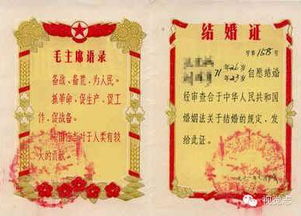 毛主席语录
备战、备荒、为人民。
抓革命，促生产，促工
作，促战备。
中国应当对于人类有较
大的贡献。
结婚证
字第158号
年26岁
年23岁
自愿结婚
经审查合于中华人民共和国
婚姻法关于结婚的规定，发
给此证。
视觉志